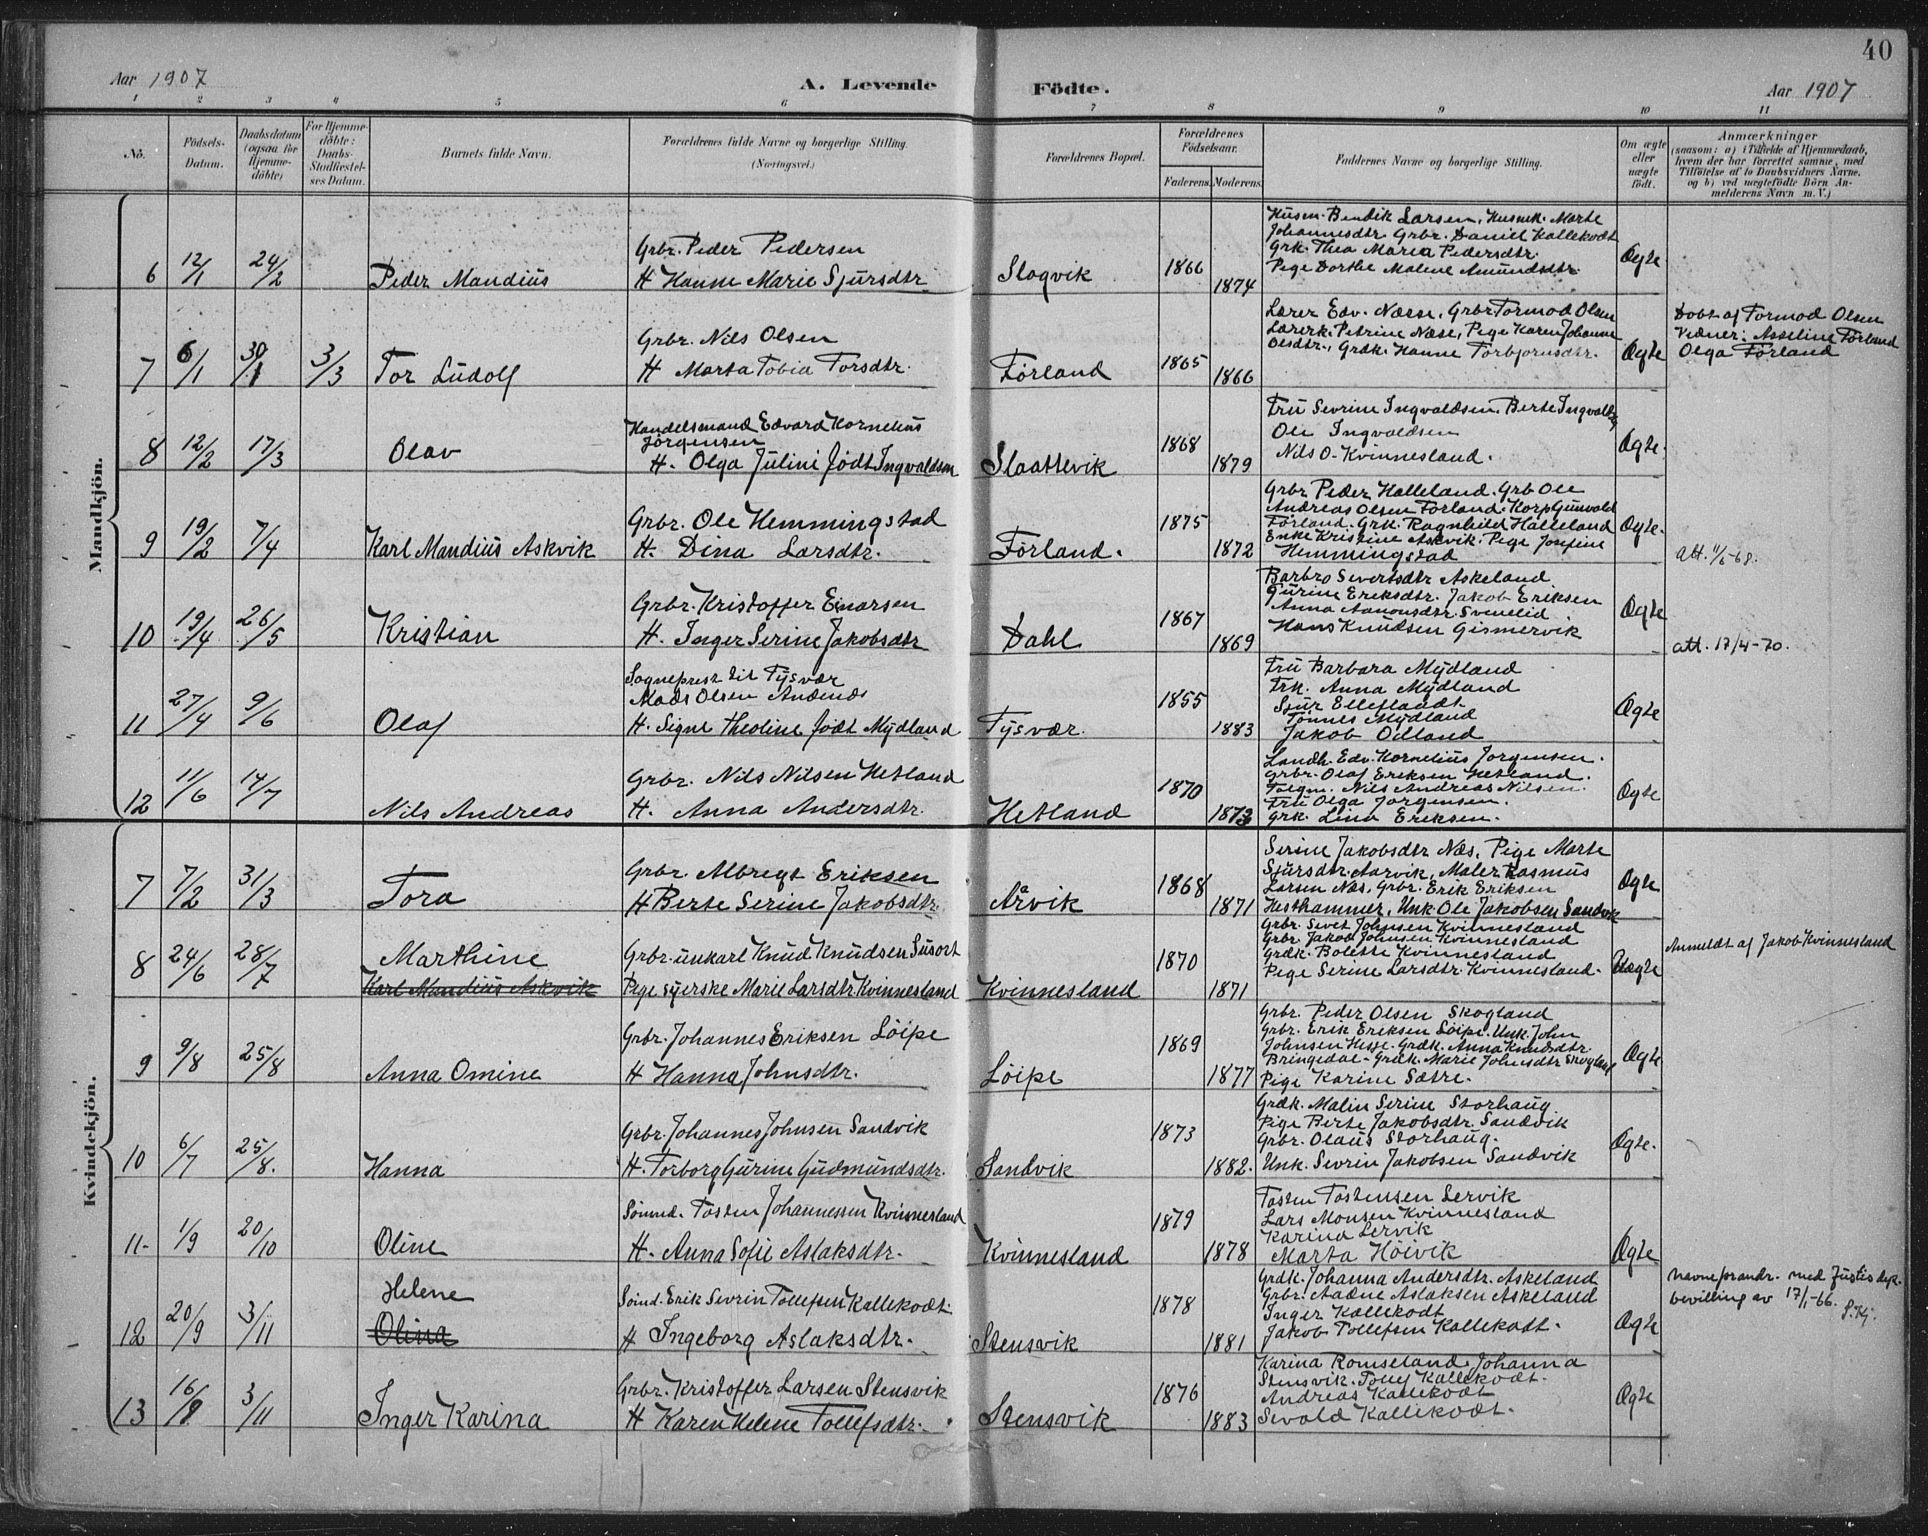 40
Aar 1907
A. Levende Födte.
Aar 1907
1 2 3 4 5 6 7 8 9 10 11
No.
Födsels-Datum.
Daabsdatum (ogsaa for Hjemmedöbte)
For Hjemmedöbte: Daabs-Stadfæstelses Datum.
Barnets fulde Navn.
Forældrenes fulde Navne og borgerlige Stilling. (Næringsvei.)
Forældrenes Bopæl.
Forældrenes Födselsaar.
Faderens. Moderens.
Faddernes Navne og borgerlige Stilling.
Om ægte eller uægte födt.
Anmærkninger
(saasom: a) i Tilfælde af Hjemmedaab, hvem der har forrettet samme, med Tilföielse af to Daabsvidners Navne, og b) ved uægtefödte Börn Anmelderens Navn m. V.)
Mandkjön.
6 12/1 24/2 Peder Mandius
Grbr. Peder Pedersen
H Hanne Marie Sjursdtr
Slogvik 1866 1874
Husm. Bendik Larsen, Husmk. Marte
Johannesdtr. Grbr. Daniel Kallekodt
Grk. Thea Maria Pedersdtr.
Pige Dorthe Malene Amundsdtr
Ægte
7 6/1 30/1 3/3 Tor Ludolf
Grbr. Nils Olsen
H Marta Tobia Torsdtr.
Førland 1865 1866
Lærer Edv. Næsse, Grbr. Tormod Olsen
Lærerk. Petrine Næse, Pige Karen Johanne
Olsdtr., Grdk. Hanne Torbjornsdtr.
Ægte
Døbt af Tormod Olsen
Vidner: Asseline Førland
Olga Førland
8 12/2 17/3 Olav
Handelsmand Edvard Kornelius
Jörgensen
H. Olga Julini født Ingvaldsen
Slaattevik 1868 1879
Fru Sevrine Ingvaldsen. Berte Ingvalds
Ole Ingvaldsen
Nils O. Kvinnesland.
Ægte.
9 19/2 7/4 Karl Mandius Askvik
Grbr. Ole Hemmingstad
H. Dina Larsdtr.
Førland. 1875 1872
Grbr Peder Halleland. Grb Ole
Andreas Olsen Førland. Korp Gunvald
Førland. Grk. Ragnhild Halleland
Enke Kristine Askvik. Pige Josefine
Hemmingstad
Ægte.
att. 11/6-68.
10 19/4 26/5 Kristian
Grbr. Kristoffer Einarsen
H. Inger Serine Jakobsdtr
Dahl 1867 1869
Barbro Severtsdtr Askeland
Gurine Eriksdtr. Jakob Eriksen
Anna Aanonsdtr Svinelid
Hans Knudsen Gismervik
Ægte
att. 17/4-70.
11 27/4 9/6 Olaf
Sogneprest til Tysvær
Mads Olsen Andenæs
H. Signe Theoline født Mydland
Tysvær. 1855 1883
Fru Barbara Mydland
Frk. Anna Mydland
Sjur Elleflaadt
Tønnes Mydland
Jakob Odland
Ægte
12 11/6 14/7 Nils Andreas
Grbr. Nils Nilsen Hetland
H. Anna Andersdtr.
Hetland 1870 1873
Landh. Edv. Kornelius Jorgensen.
Grbr. Olaf Eriksen Hetland.
Nils Andreas Nilsen.
Fru Olga Jorgensen.
Grk. Lina Eriksen.
Ægte
Kvindekjön.
7 7/2 31/3 Tora
Grbr. Albregt Eriksen
H Berte Serine Jakobsdtr.
Årvik 1868 1871
Serine Jakobsdtr Næs, Pige Marte
Sjursdtr. Aarvik, Maler Rasmus
Larsen Næs, Grbr. Erik Eriksen
Hesthammer, Unk Ole Jakobsen Sandvik
Ægte
8 24/6 28/7 Marthine
Karl Mandius Askvik
Grbr. unkarl Knud Knudsen Susort
Pige syerske Marie Larsdtr Kvinnesland
Kvinnesland 1870 1871
Grbr. Sivert Johnsen Kvinnesland
Grbr. Jakob Johnsen Kvinnesland
Grdk. Bolette Kvinnesland
Pige Serine Larsdtr. Kvinnesland.
Uægte
Anmeldt af Jakob Kvinnesland
9 9/8 25/8 Anna Omine
Grbr. Johannes Eriksen Löipe
H Hanna Johnsdtr.
Löipe 1869 1877
Grbr. Peder Olsen Skogland
Grbr. Erik Eriksen Löipe. Unk. John
Johnsen Hesje. Grdk. Anna Knudsdtr
Bringedal. Grdk. Marie Johnsdtr Skogland
Pige Karine Sætre.
Ægte
10 6/7 25/8. Hanna
Grbr. Johannes Johnsen Sandvik
H. Torborg Gurine Gudmundsdtr.
Sandvik 1873 1882.
Grdk. Malin Serine Storhaug
Pige Berte Jakobsdtr. Sandvik
Grbr. Olaus Storhaug.
Unk. Sevrin Jakobsen Sandvik
Ægte.
11. 1/9 20/10 Oline
Tosten Johannessen Kvinnesland
H. Anna Sofie Aslaksdtr.
Kvinnesland 1879 1878
Tosten Tostensen Lervik
Lars Monsen Kvinnesland
Karina Lervik
Marta Höivik
Ægte
12 20/9 3/11 Helene
Olina
Erik Sevrin Tollefsen Kallekodt
H Ingeborg Aslaksdtr.
Stensvik 1878 1881
Grdk. Johanna Andersdtr. Askeland
Grbr. Aadne Aslaksen Askeland
Inger Kallekodt
Jakob Tollefsen Kallekodt.
Ægte
Navneforandr. med Justisdep.
bevilling av 17/1-66. S.Kj.
13 16/9 3/11 Inger Karina
Grbr. Kristoffer Larsen Stensvik
H Karen Helene Tollefsdtr.
Stensvik 1876 1883
Karina Romseland. Johanna
Stensvik. Kallekodt.
Andreas Kallekodt
Sevald Kallekodt.
Ægte